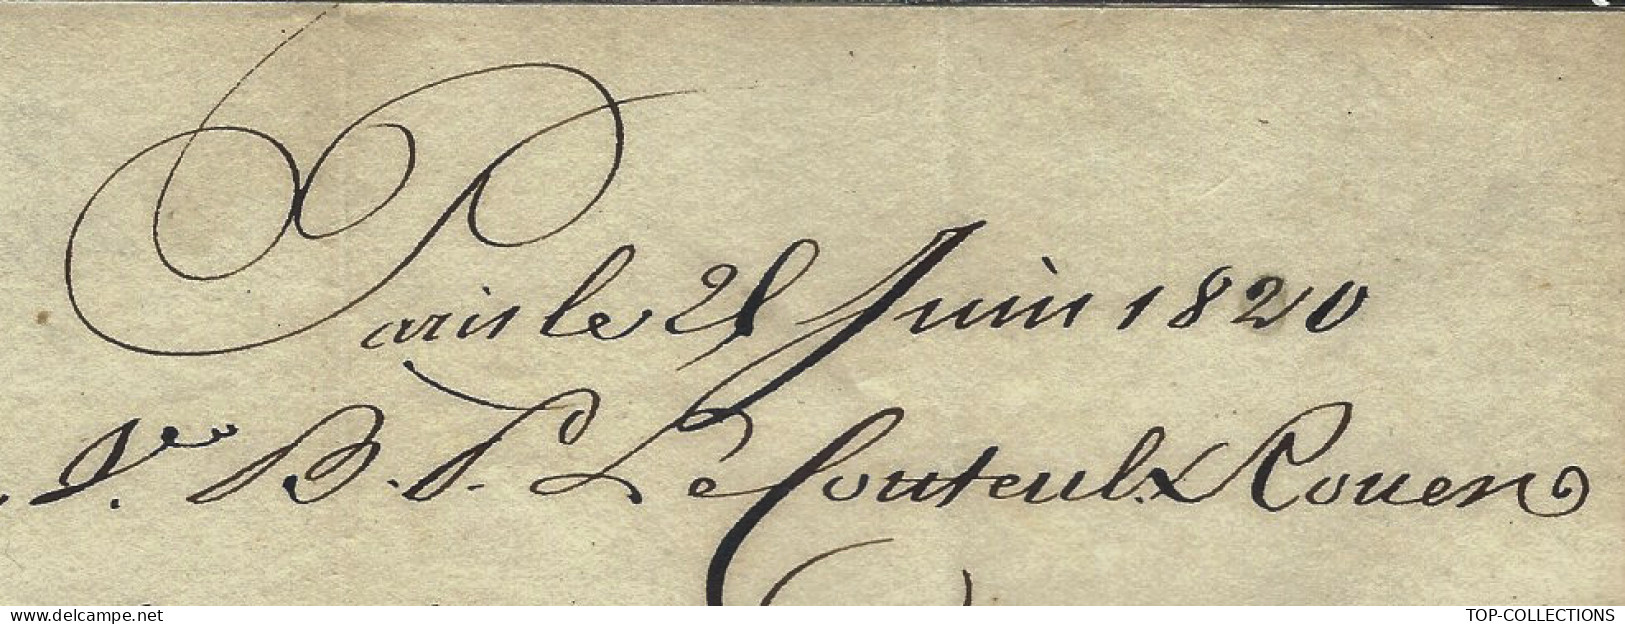 Paris le 28 Juin 1820
Vve B. P. Le Couteulx Rouen
www.delcampe.net
TOP-COLLECTIONS